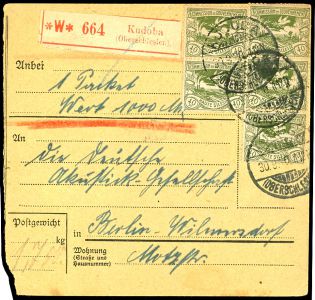 *W* 664 Kudoba
(Oberschlesien).
Anbei
1 Packet
Wert 1000 M
An
die Deutsche
Akustick Gesellschaft
Postgewicht
kg
in Berlin-Wilmersdorf
Wohnung
(Straße und
Hausnummer)
Motzstr.